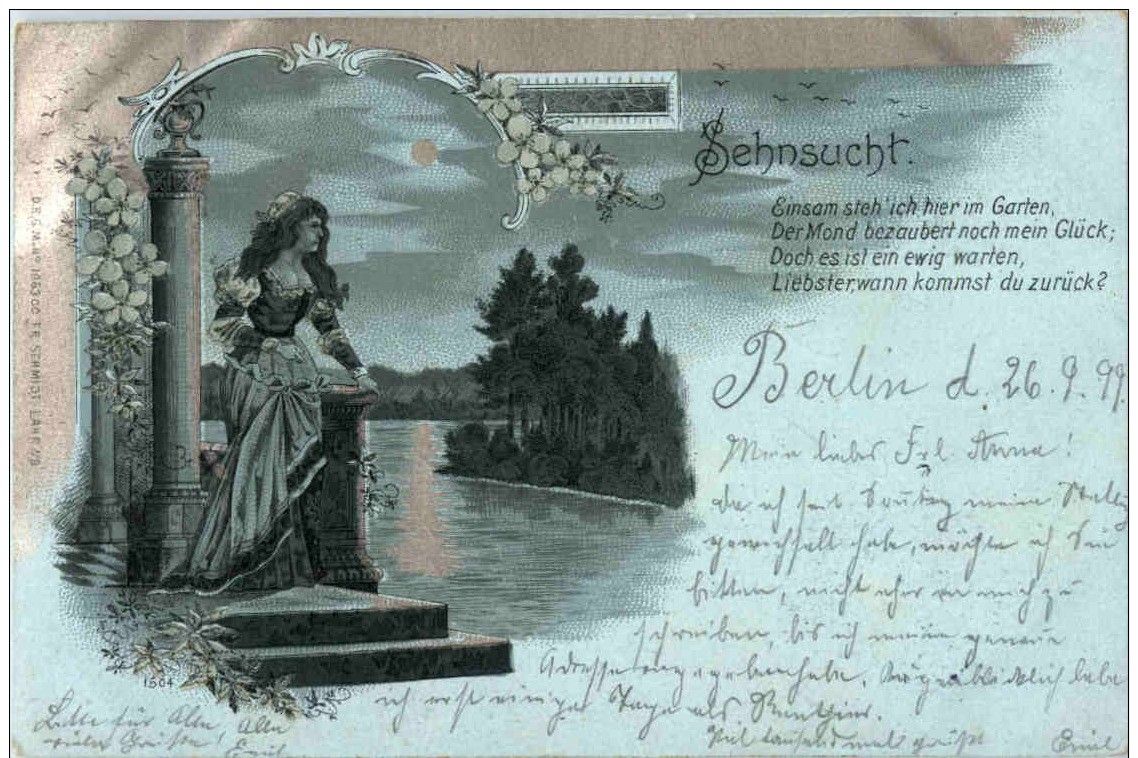 Sehnsucht.
Einsam steh' ich hier im Garten,
Der Mond bezaubert noch mein Glück;
Doch es ist ein ewig warten,
Liebster, wann kommst du zurück?
Berlin d. 26.9.99.
Mein liebes Frl. Anna!
da ich seit Sonntag meine Stellg
gewechselt habe, möchte ich Sie
bitten, nicht eher an mich zu
schreiben, bis ich meine genaue
Adresse angegeben habe. Augenblicklich lebe
ich erst einige Tage als Rentier.
Viel tausend mal grüßt Emil
Bitte für Alle, Alle
viele Grüße! Emil
1504